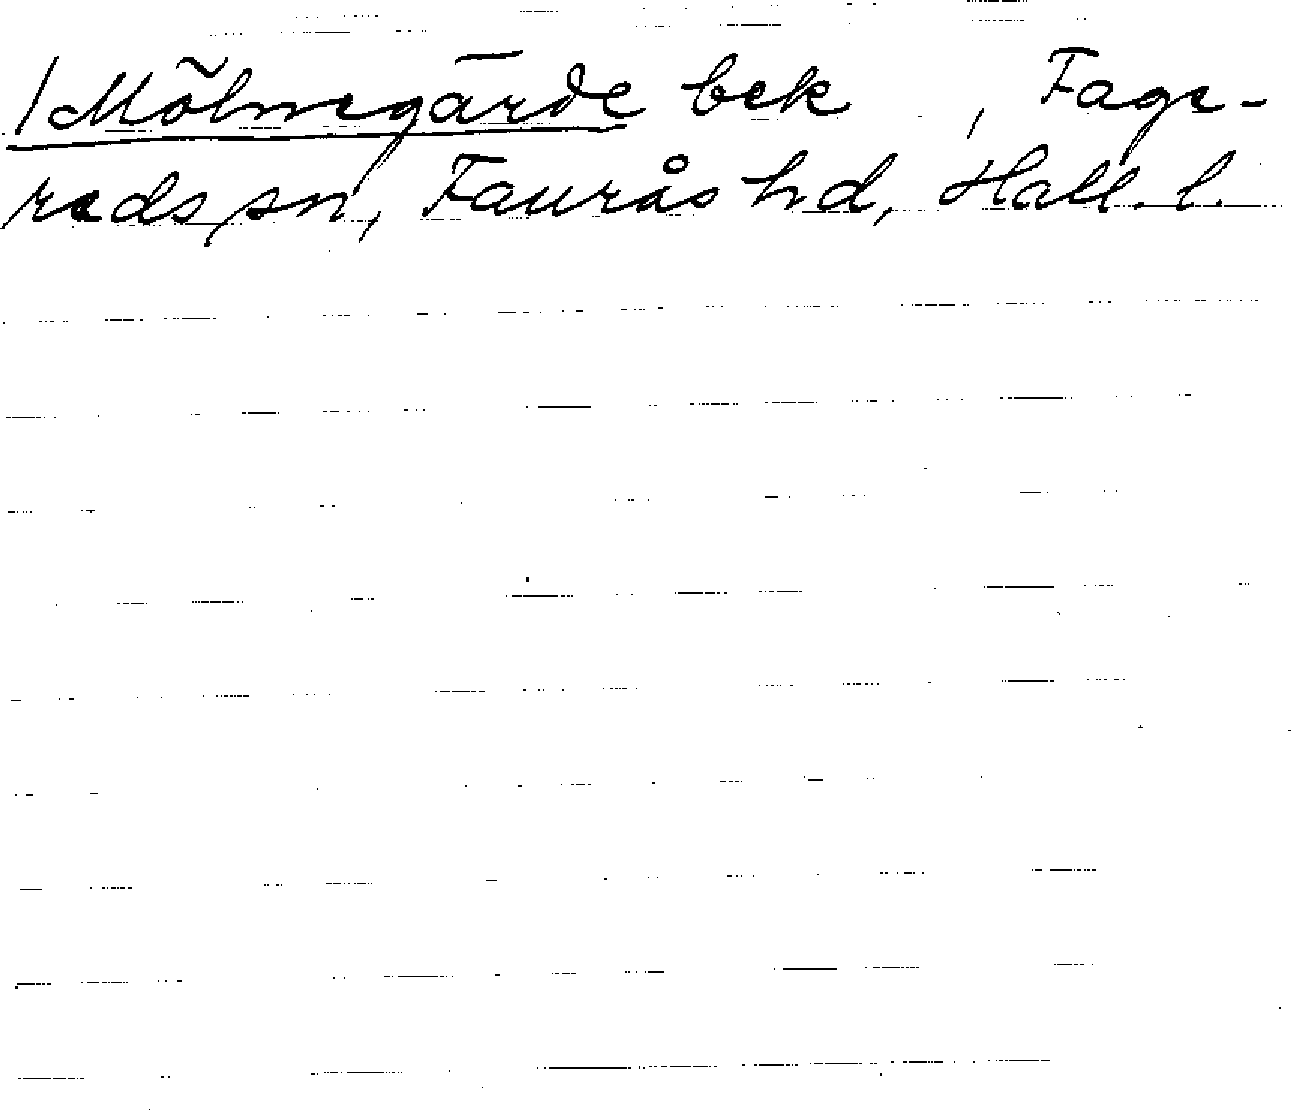 /Mölnegärde bek , Fage-
reds sn, Faurås hd, Hall. l.